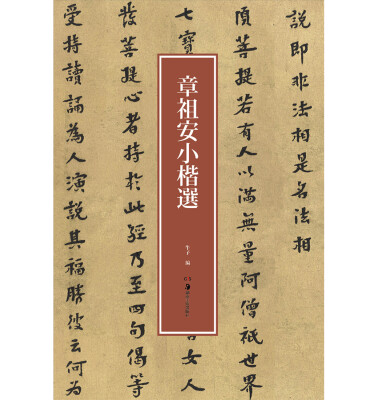 說即非法相是名法相
須菩提若有人以滿無量阿僧祇世界
七寶
女人
發菩提心者持於此經乃至四句偈等
受持讀誦為人演說其福勝彼云何為
章祖安小楷選